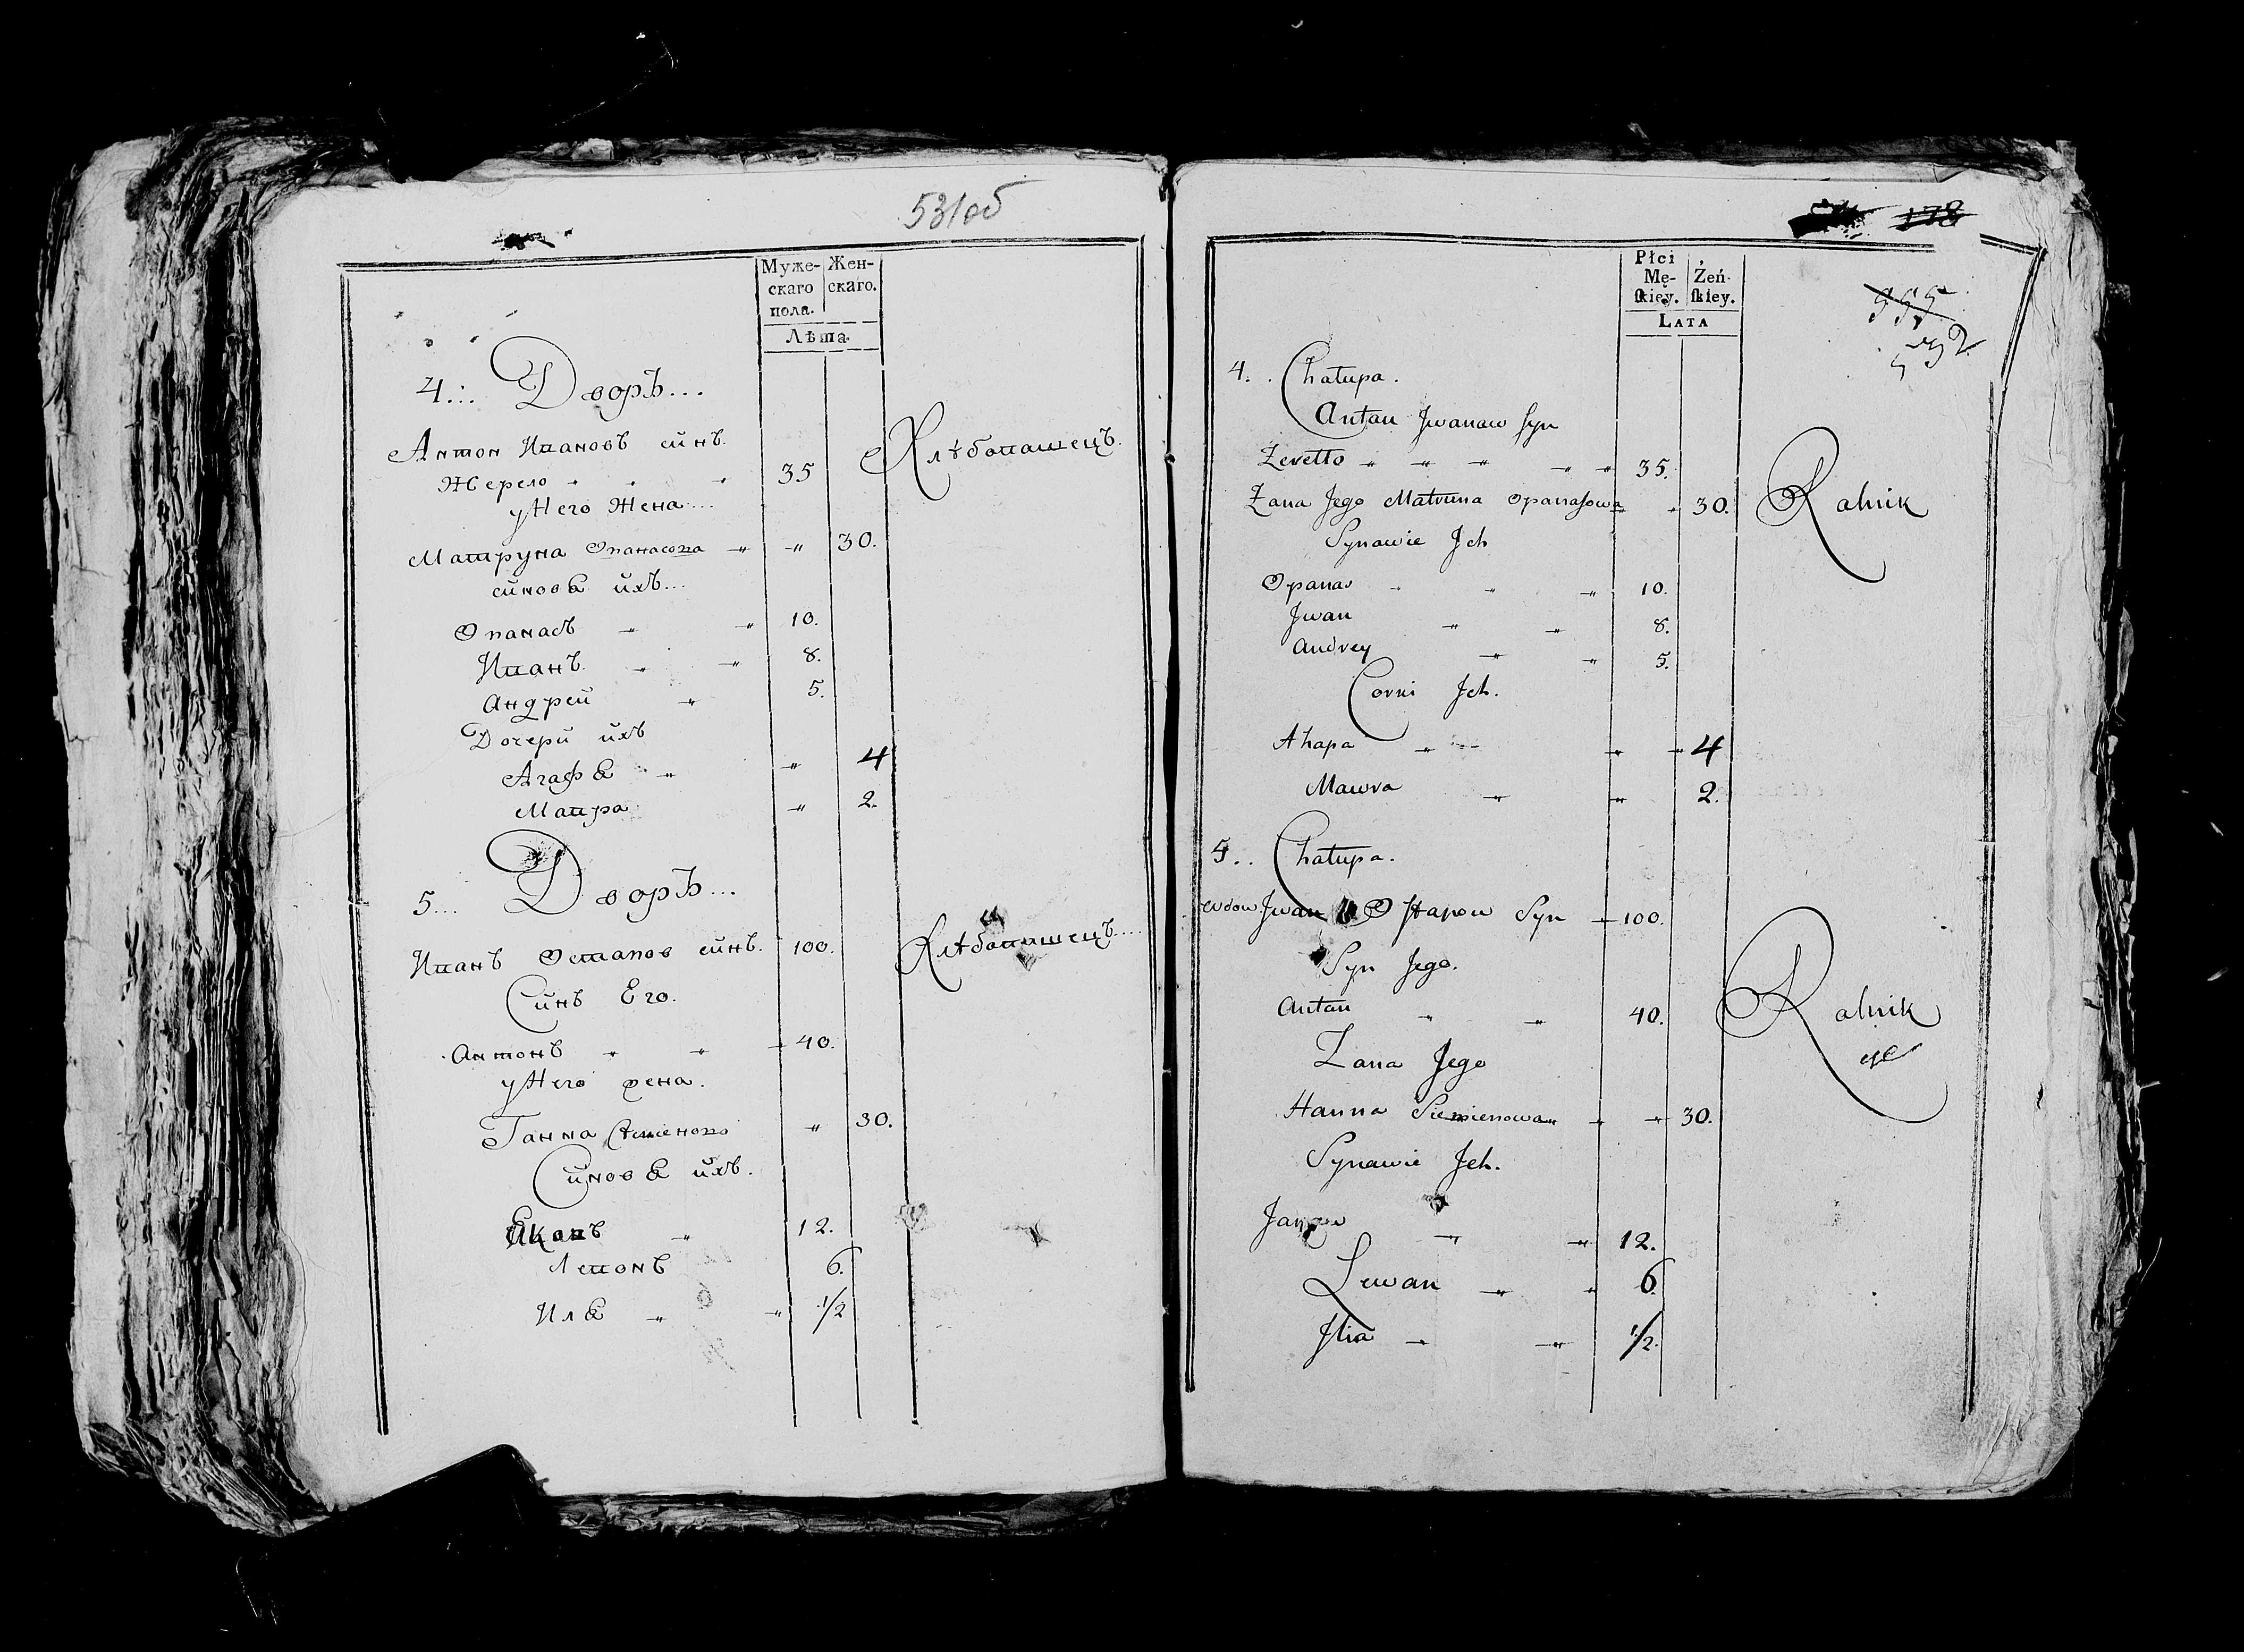 531об
Муже- Жен-
скаго скаго.
пола.
Лѣта.
4... Дворъ...
Антон Ивановъ синъ.
Жерело 35 Хлѣбопашецъ.
у Него Жена...
Матруна Опанасова 30.
синовя ихъ...
Опанасъ 10.
Иванъ 8.
Андрей 5.
Дочери ихъ
Агафя 4
Мавра 2.
5... Дворъ...
Иванъ Остапов синъ. 100. Хлѣбопашецъ....
Синъ Его.
Антонъ 40.
у Него жена.
Ганна Семенова 30.
Синовя ихъ.
12.
Левонъ 6.
Иля 1/2
178
Płci
Mę- Żeń-
ſkiey. ſkiey.
Lata
532
4.. Chałupa.
Antan Jwanaw Syn
Żerełło 35.
Żana Jego Matruna Opanaſowa 30. Ralnik
Synawie Jch
Opanas 10.
Jwan 8.
Andrey 5.
Corki Jch.
Ahapa 4
Mawra 2.
5.. Chałupa.
wdow Jwan Oſtapow Syn 100.
Syn Jego.
Antan 40. Ralnik
Żana Jego
Hanna Siemienowa 30.
Synawie Jch.
12.
Lewan 6
Jlia 1/2.